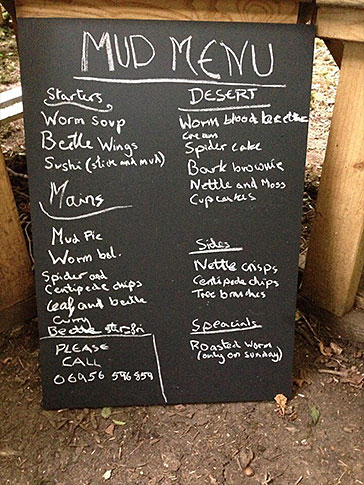 MUD MENU
Starters
Worm soup
Beetle Wings
Sushi (slice and mud)
Mains
Mud Pie
Worm bol.
Spider and
Centipede chips
leaf and beetle
curry
Beetle stir-fri
PLEASE
CALL
06956 596859
DESERT
Worm blood beetle
cream
Spider cake
Bark brownie
Nettle and Moss
Cupcakes
Sides
Nettle crisps
Centipede chips
Tree branches
Speacials
Roasted Worm
(only on sunday)